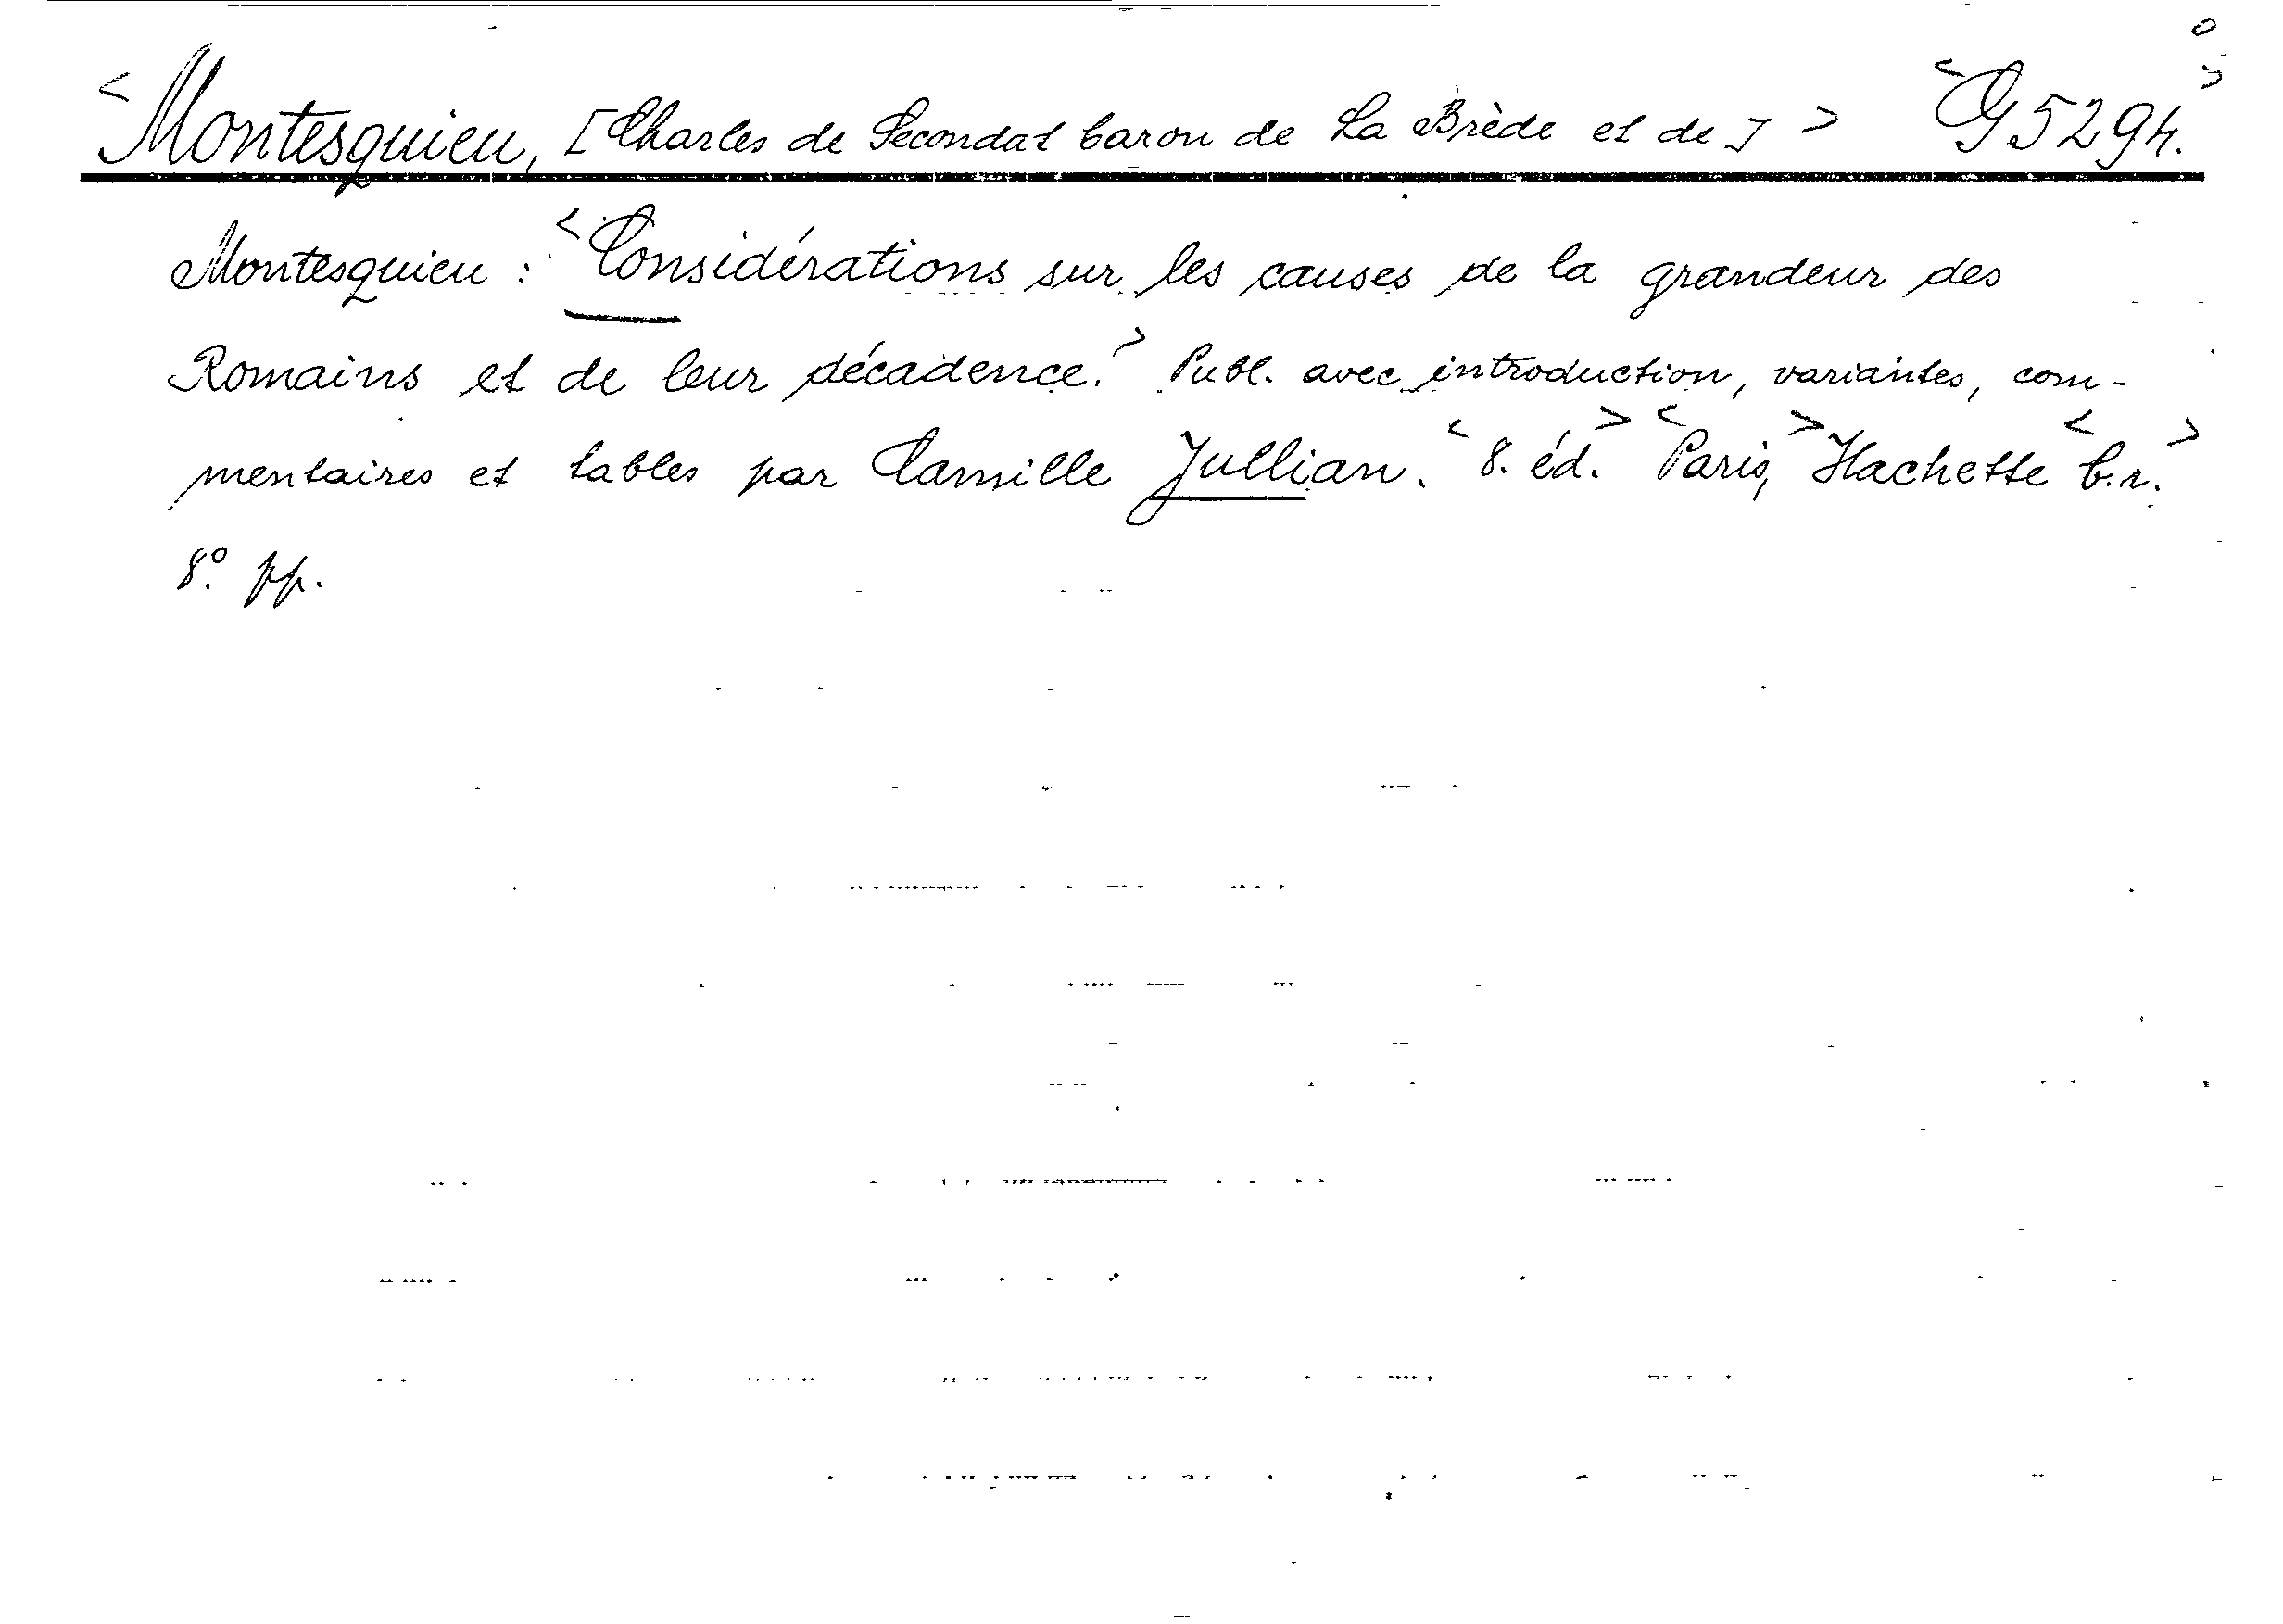 <Montesquieu, [Charles de Secondat baron de La Brède et de] > <G 5294.>
Montesquieu : <Considérations sur les causes de la grandeur des
Romains et de leur décadence.> Publ. avec introduction, variantes, com-
mentaires et tables par Camille Jullian. <8. éd.> <Paris,> Hachette <b.r.>
8° pp.